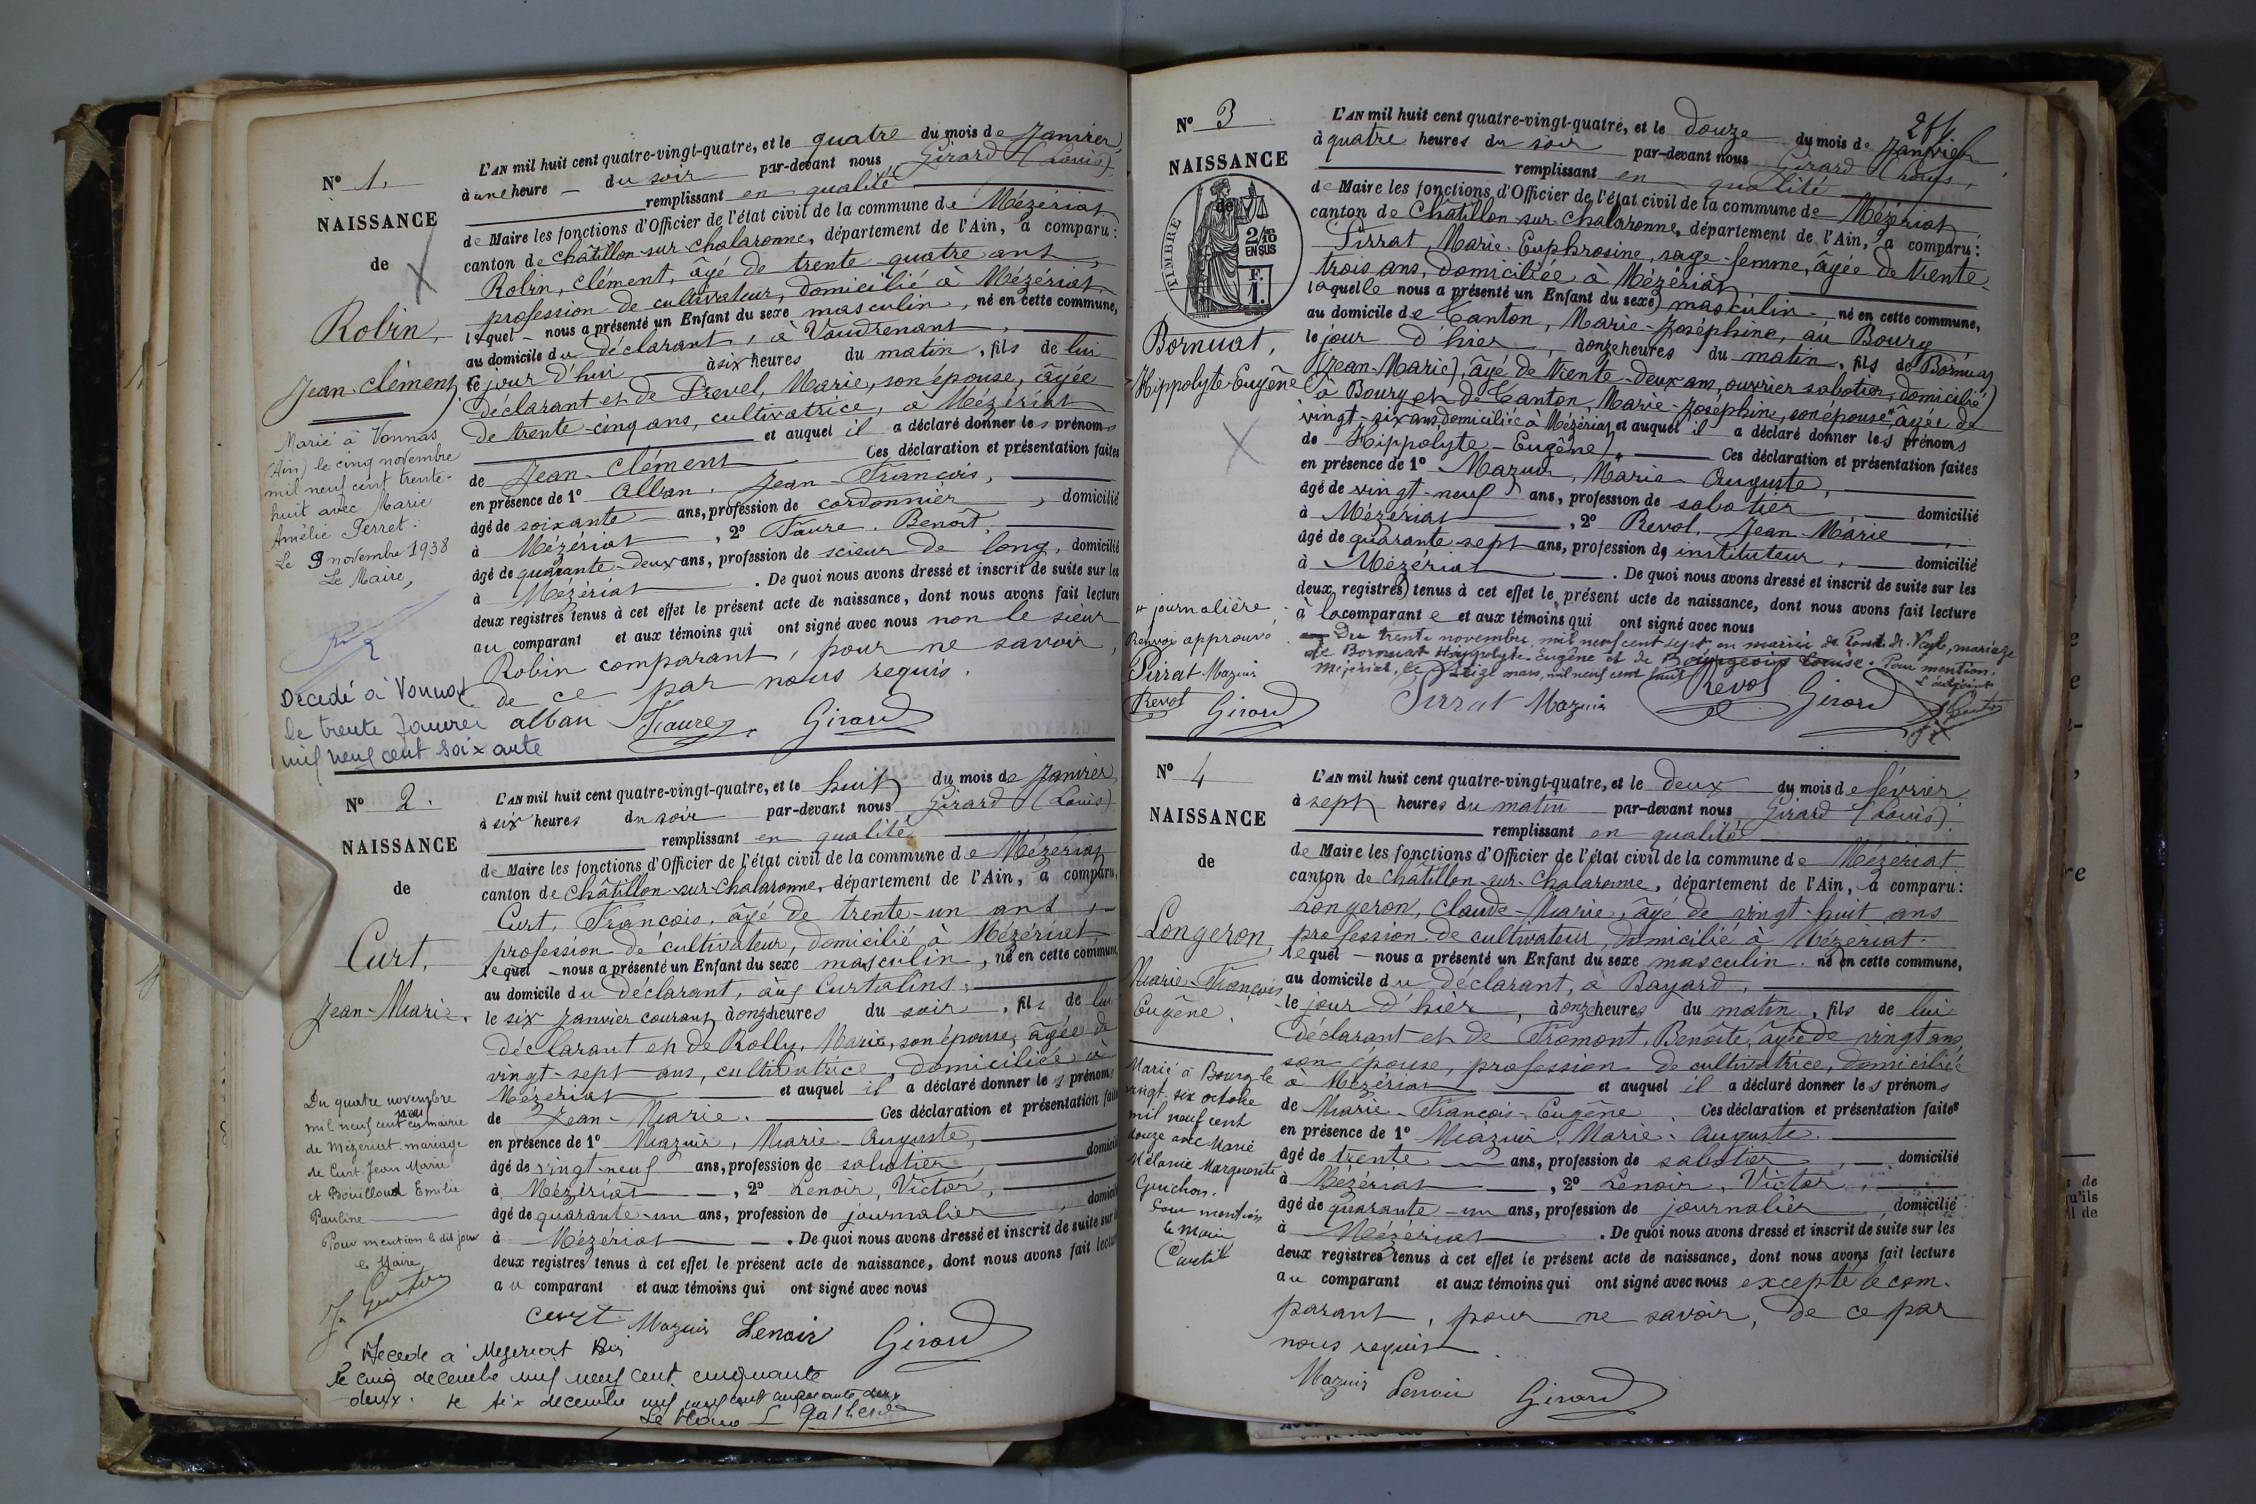 N° 1.
NAISSANCE
de
Robin,
Jean-Clément
Marié à Vonnas
(Ain) le cinq novembre
mil neuf cent trente-
huit avec Marie
Amélie Perret.
Le 9 novembre 1938
Le Maire,
Décédé à Vonnas
le trente Janvier
mil neuf cent soixante
L'AN mil huit cent quatre-vingt-quatre, et le quatre du mois de Janvier,
à une heure du soir par-devant nous Girard (Louis).
remplissant en qualité
de Maire les fonctions d'Officier de l'état civil de la commune de Mézériat
canton de Châtillon-sur-Chalaronne, département de l'Ain, a comparu :
Robin, Clément, âgé de trente quatre ans,
profession de cultivateur, domicilié à Mézériat
lequel nous a présenté un Enfant du sexe masculin, né en cette commune,
au domicile du déclarant, à Vaudrenant,
le jour d'hui à six heures du matin, fils de lui
déclarant et de Prevel, Marie, son épouse, âgée
de trente-cinq ans, cultivatrice, à Mézériat
et auquel il a déclaré donner les prénoms
de Jean-Clément Ces déclaration et présentation faites
en présence de 1° Alban, Jean-François,
âgé de soixante ans, profession de cordonnier, domicilié
à Mézériat, 2° Faure, Benoît,
âgé de quarante-deux ans, profession de scieur de long, domicilié
à Mézériat. De quoi nous avons dressé et inscrit de suite sur les
deux registres tenus à cet effet le présent acte de naissance, dont nous avons fait lecture
au comparant et aux témoins qui ont signé avec nous non le sieur
Robin comparant, pour ne savoir,
de ce par nous requis.
alban Faure Girard
N° 2.
NAISSANCE
de
Curt,
Jean-Marie.
Du quatre novembre
mil neuf cent en mairie
de Mézériat mariage
de Curt Jean Marie
et Bouilloud Emilie
Pauline
Pour mention le dit jour
le Maire
L'AN mil huit cent quatre-vingt-quatre, et le huit du mois de Janvier
à six heures du soir par-devant nous Girard (Louis)
remplissant en qualité
de Maire les fonctions d'Officier de l'état civil de la commune de Mézériat
canton de Châtillon-sur-Chalaronne, département de l'Ain, a comparu,
Curt, François, âgé de trente-un ans,
profession de cultivateur, domicilié à Mézériat
lequel nous a présenté un Enfant du sexe masculin, né en cette commune,
au domicile du déclarant, aux Curtalins,
le six Janvier courant, à onze heures du soir, fils de lui
déclarant et de Rolly, Marie, son épouse, âgée de
vingt-sept ans, cultivatrice, domiciliée à
Mézériat et auquel il a déclaré donner les prénoms
de Jean-Marie. Ces déclaration et présentation faites
en présence de 1° Mazuir, Marie-Auguste,
âgé de vingt-neuf ans, profession de sabotier, domicilié
à Mézériat, 2° Lenoir, Victor,
âgé de quarante-un ans, profession de journalier, domicilié
à Mézériat. De quoi nous avons dressé et inscrit de suite sur les
deux registres tenus à cet effet le présent acte de naissance, dont nous avons fait lecture
au comparant et aux témoins qui ont signé avec nous
curt Mazuir Lenoir Girard
Décédé à Mézériat Ain
le cinq décembre mil neuf cent cinquante
deux. le six décembre mil neuf cent cinquante deux
Le Maire
N° 3
NAISSANCE
de
TIMBRE
2/10
EN SUS
F.
1.
Bornuat,
Hippolyte-Eugène
* journalière
Renvoi approuvé
Pirrat Mazuir
Revol Girard
L'AN mil huit cent quatre-vingt-quatre, et le douze du mois de Janvier
à quatre heures du soir par-devant nous Girard Louis,
remplissant en qualité
de Maire les fonctions d'Officier de l'état civil de la commune de Mézériat
canton de Châtillon-sur-Chalaronne, département de l'Ain, a comparu :
Pirrat, Marie-Euphrosine, sage-femme, âgée de trente
trois ans, domiciliée à Mézériat,
laquelle nous a présenté un Enfant du sexe masculin né en cette commune,
au domicile de Canton, Marie-Joséphine, au Bourg
le jour d'hier, à onze heures du matin, fils de Bornuat
(Jean-Marie), âgé de trente-deux ans, ouvrier sabotier, domicilié
à Bourg et de Canton, Marie-Joséphine, son épouse* âgée de
vingt-six ans, domiciliée à Mézériat, et auquel il a déclaré donner les prénoms
de Hippolyte-Eugène. Ces déclaration et présentation faites
en présence de 1° Mazuir, Marie-Auguste,
âgé de vingt-neuf ans, profession de sabotier, domicilié
à Mézériat, 2° Revol, Jean-Marie
âgé de quarante-sept ans, profession de instituteur, domicilié
à Mézériat. De quoi nous avons dressé et inscrit de suite sur les
deux registres tenus à cet effet le présent acte de naissance, dont nous avons fait lecture
à la comparante et aux témoins qui ont signé avec nous
Du trente novembre mil neuf cent sept, en mairie de Pont-de-Veyle, mariage
de Bornuat Hippolyte-Eugène et de Bourgeois Louise. Pour mention.
Mézériat, le treize mars, mil neuf cent huit L'adjoint
Pirrat Mazuir Revol Girard
N° 4
NAISSANCE
de
Longeron,
Marie-François
Eugène.
Marié à Bourg le
vingt-six octobre
mil neuf cent
douze avec Marie
Mélanie Marguerite
Guichon.
Pour mention
le Maire
L'AN mil huit cent quatre-vingt-quatre, et le deux du mois de février
à sept heures du matin par-devant nous Girard (Louis).
remplissant en qualité
de Maire les fonctions d'Officier de l'état civil de la commune de Mézériat
canton de Châtillon-sur-Chalaronne, département de l'Ain, a comparu :
Longeron, Claude-Marie, âgé de vingt-huit ans
profession de cultivateur, domicilié à Mézériat.
lequel nous a présenté un Enfant du sexe masculin. né en cette commune,
au domicile du déclarant, à Bayard.
le jour d'hier, à onze heures du matin, fils de lui
déclarant et de Fromont, Benoîte, âgée de vingt ans,
son épouse, profession de cultivatrice, domiciliée
à Mézériat et auquel il a déclaré donner les prénoms
de Marie-François-Eugène. Ces déclaration et présentation faites
en présence de 1° Mazuir, Marie-Auguste.
âgé de trente ans, profession de sabotier, domicilié
à Mézériat, 2° Lenoir, Victor,
âgé de quarante-un ans, profession de journalier, domicilié
à Mézériat. De quoi nous avons dressé et inscrit de suite sur les
deux registres tenus à cet effet le présent acte de naissance, dont nous avons fait lecture
au comparant et aux témoins qui ont signé avec nous excepté le com-
parant, pour ne savoir, de ce par
nous requis.
Mazuir Lenoir Girard